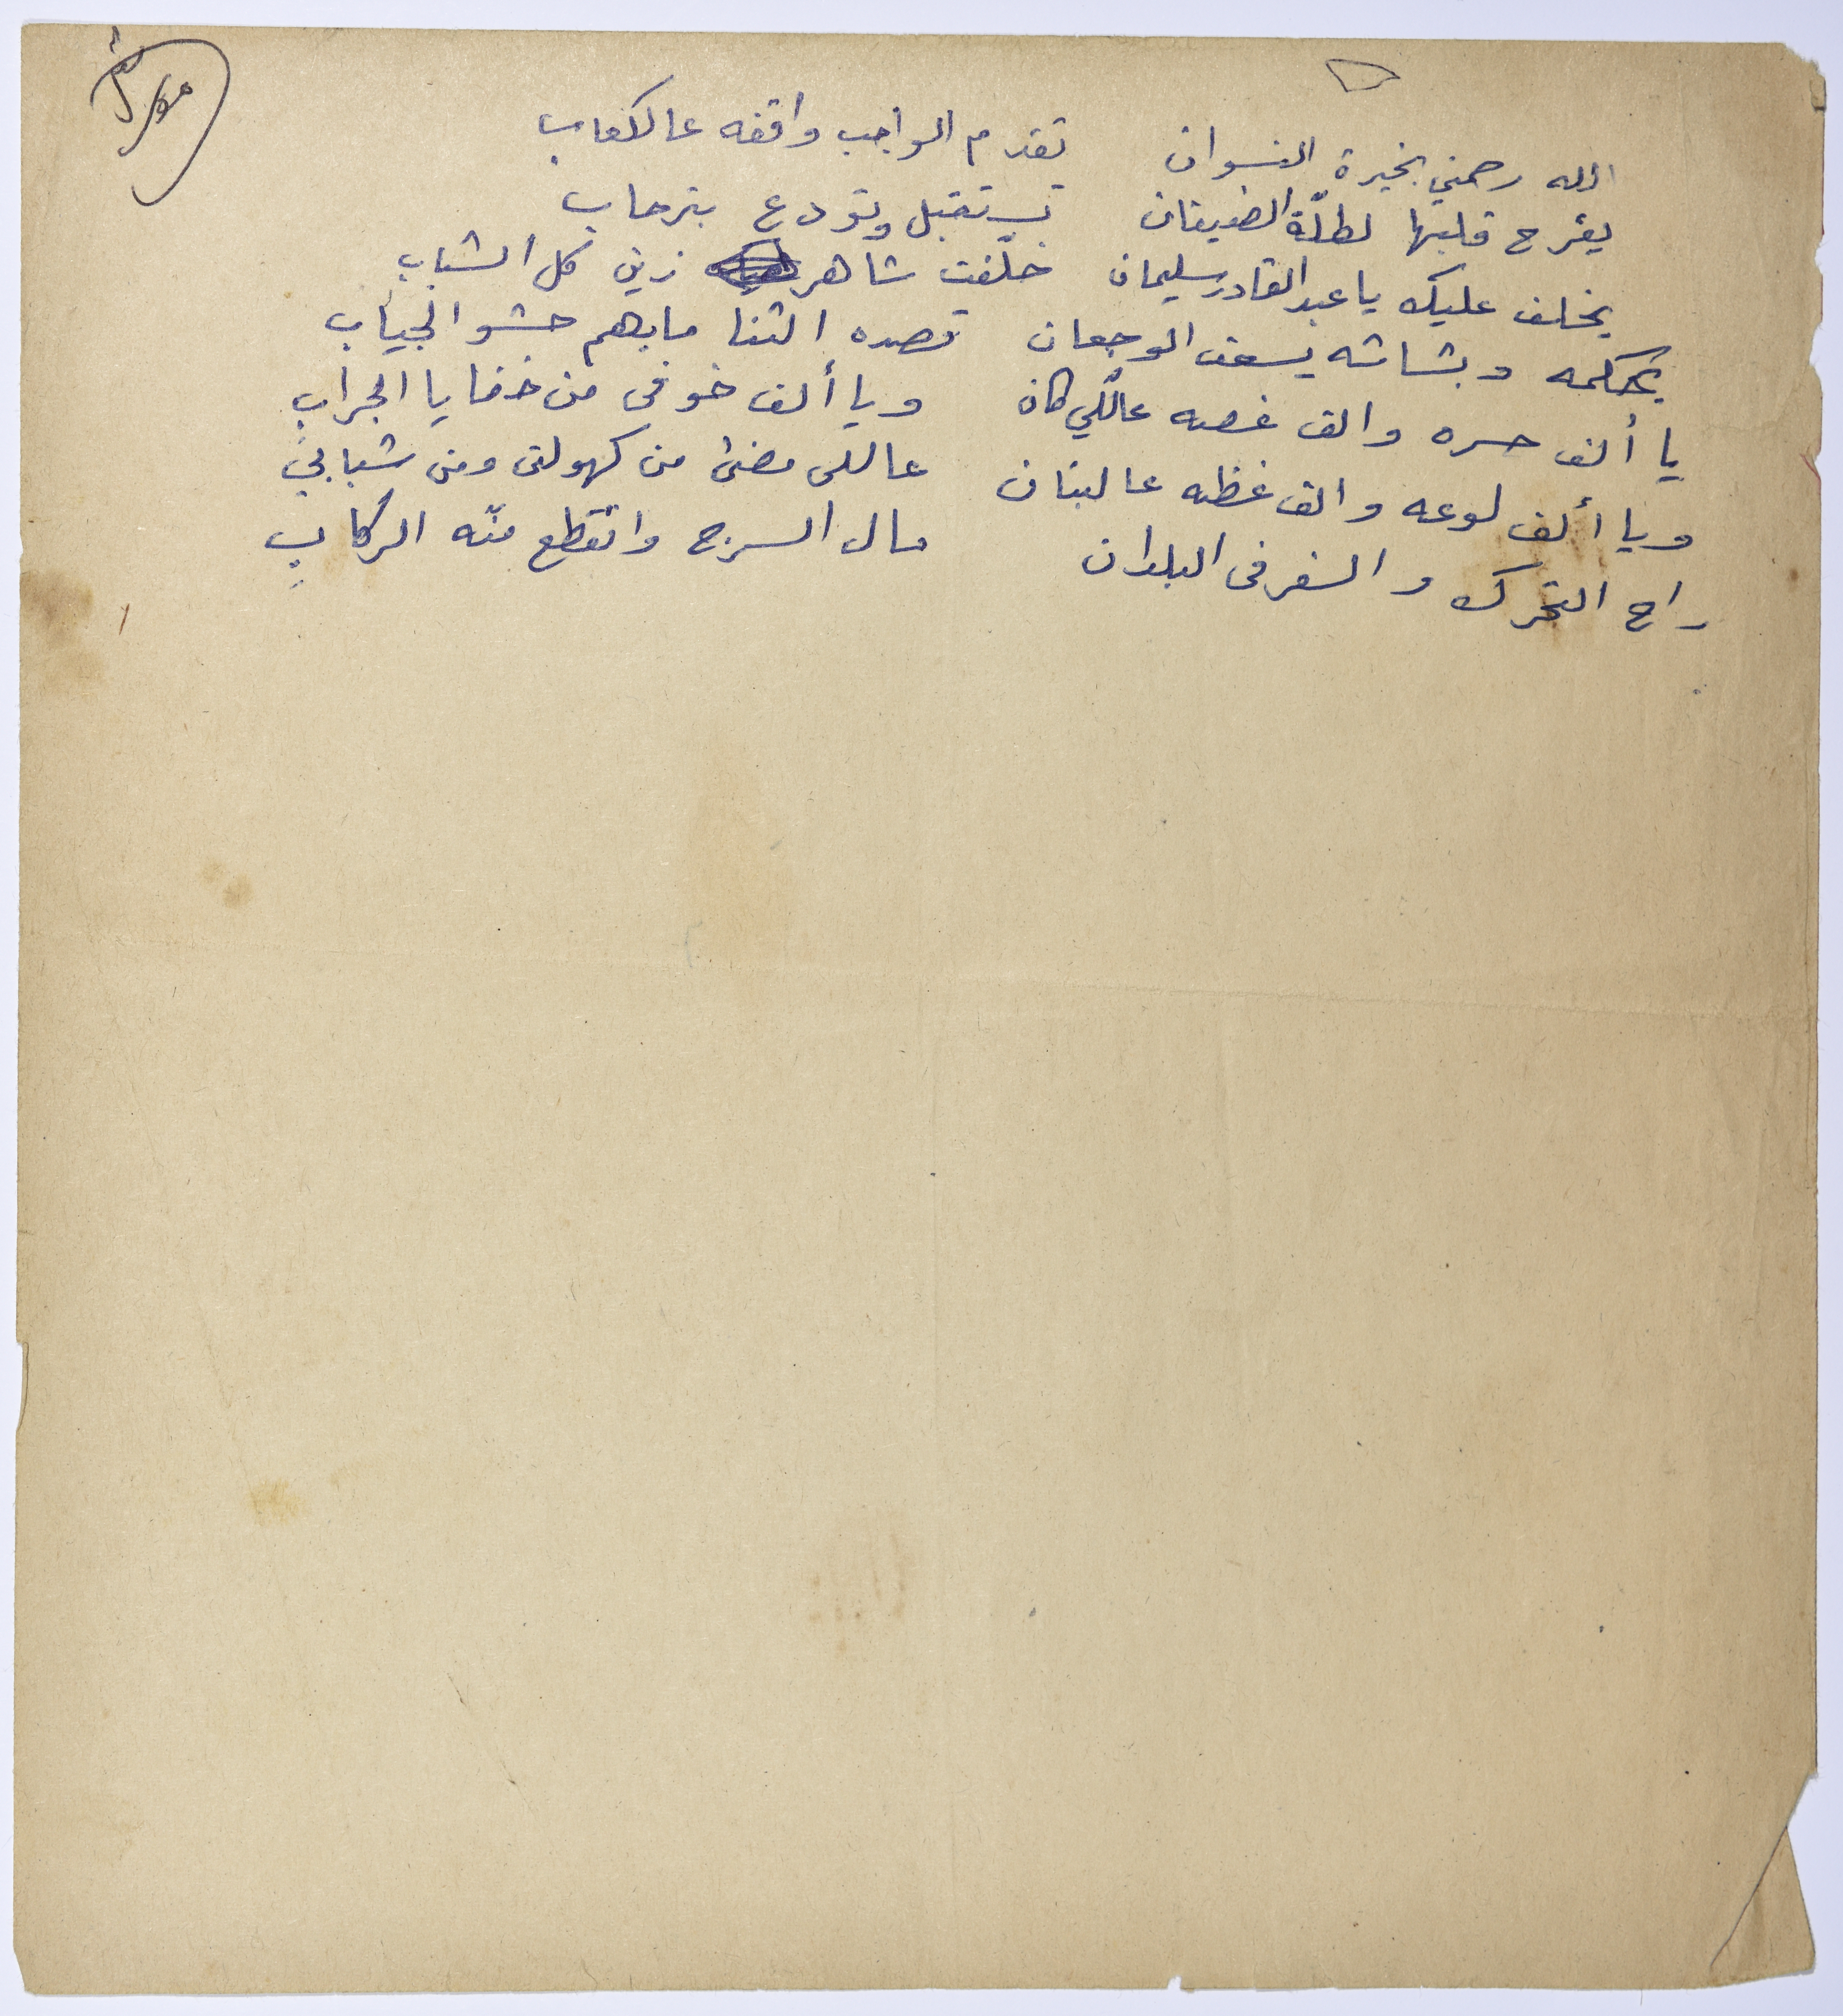 الله رحمني بخيرة النسوان    تقدم الواجب واقفه عالكعاب
يفرح قلبها لطلّة الضيفان    تستقبل وتودع بترحاب
يخلف عليك يا عبد القادر سليمان    خلّفت شاهر زين كل الشباب
بحكمه وبشاشه يسعف الوجعان    قصده الثنا مابهم حشو الجياب
يا ألف حسره والف غصه عاللّي كان    ويا ألف خوفى من خفايا الجراب
ويا ألف لوعه والف غظه عالبنان    عاللى مضىٰ من كهولتى ومن شبابي
راح التحرك والسفر فى البلدان    مال السرج وانقطع منّه الركاب